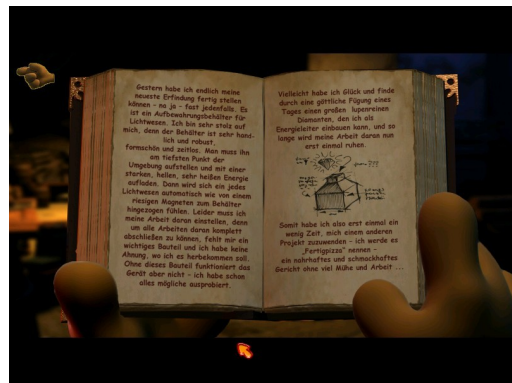 Gestern habe ich endlich meine
neueste Erfindung fertig stellen
können - na ja - fast jedenfalls. Es
ist ein Aufbewahrungsbehälter für
Lichtwesen. Ich bin sehr stolz auf
mich, denn der Behälter ist sehr hand-
lich und robust,
formschön und zeitlos. Man muss ihn
am tiefsten Punkt der
Umgebung aufstellen und mit einer
starken, hellen, sehr heißen Energie
aufladen. Dann wird sich ein jedes
Lichtwesen automatisch wie von einem
riesigen Magneten zum Behälter
hingezogen fühlen. Leider muss ich
meine Arbeit daran einstellen, denn
um alle Arbeiten daran komplett
abschließen zu können, fehlt mir ein
wichtiges Bauteil und ich habe keine
Ahnung, wo ich es herbekommen soll.
Ohne dieses Bauteil funktioniert das
Gerät aber nicht - ich habe schon
alles mögliche ausprobiert.
Vielleicht habe ich Glück und finde
durch eine göttliche Fügung eines
Tages einen großen lupenreinen
Diamanten, den ich als
Energieleiter einbauen kann, und so
lange wird meine Arbeit daran nun
erst einmal ruhen.
Somit habe ich also erst einmal ein
wenig Zeit, mich einem anderen
Projekt zuzuwenden - ich werde es
„Fertigpizza" nennen -
ein nahrhaftes und schmackhaftes
Gericht ohne viel Mühe und Arbeit ...